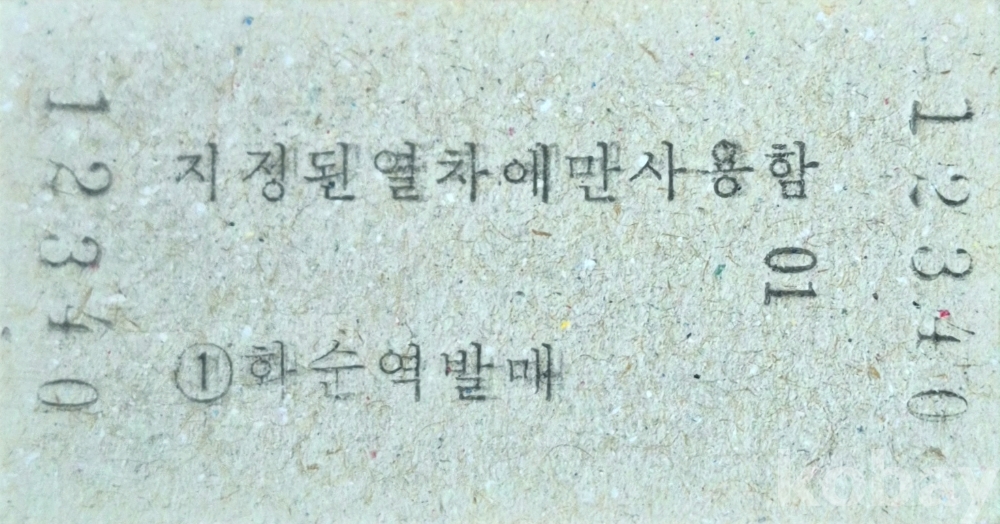 12340
지정된열차에만사용함
01
①화순역발매
12340
kobay